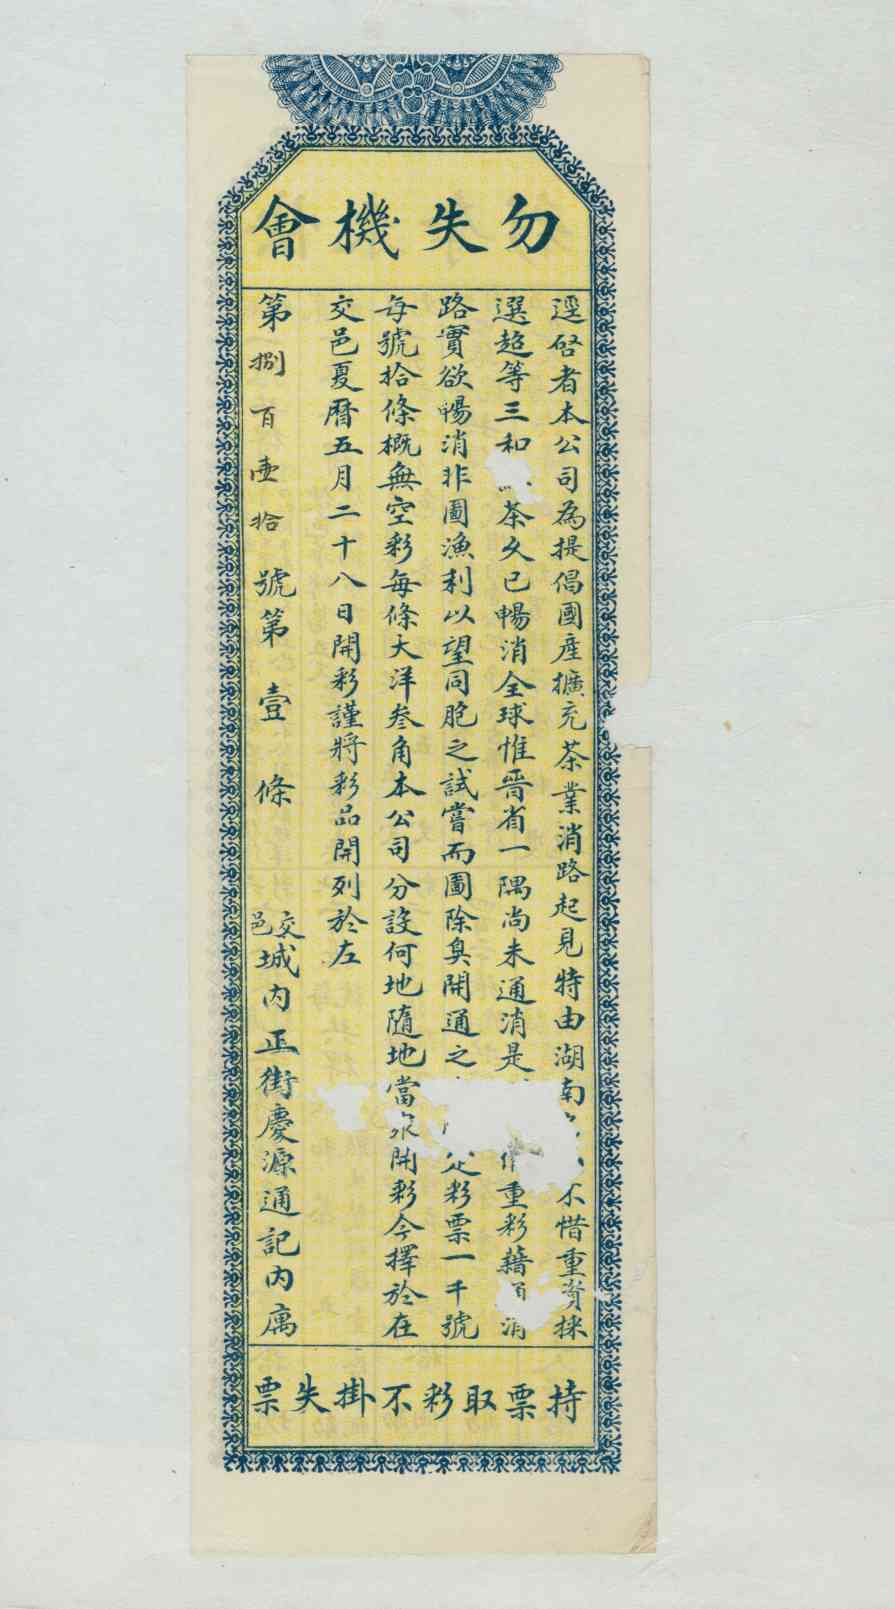 勿失機會
逕啓者本公司為提倡國産擴充茶業消路起見特由湖南不惜重資採
選超等三和茶久已暢消全球惟晋省一隅尚未通消是重彩藉消
路實欲暢消非圖漁利以望同胞之試嘗而圖除臭開通之定彩票一千號
每號拾條概無空彩每條大洋叁角本公司分設何地隨地當衆開彩今擇於在
交邑夏曆五月二十八日開彩謹將彩品開列於左
第捌百壹拾號第壹條 交邑城内正街慶源通記内寓
持票取彩不掛失票